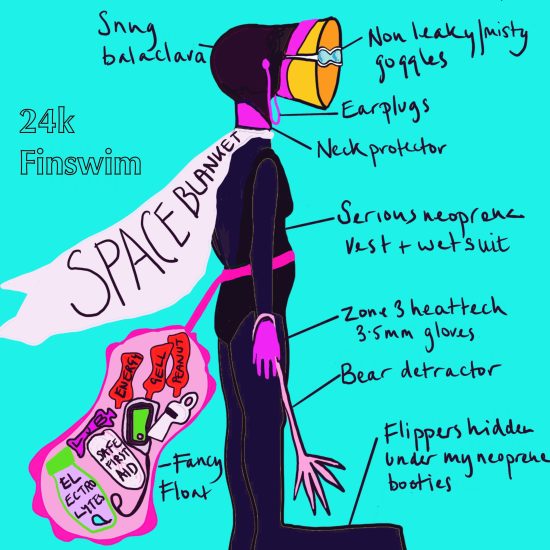 Snug
balaclava
Non leaky/misty
goggles
24k
Finswim
Earplugs
Neck protector
SPACE BLANKET
Serious neoprene
vest + wetsuit
Zone 3 heattech
3.5mm gloves
Bear detractor
ENERGY
GELL
PEANUT
SAFE
FIRST
AID
EL
ECTRO
LYTES
Fancy
Float
Flippers hidden
under my neoprene
booties